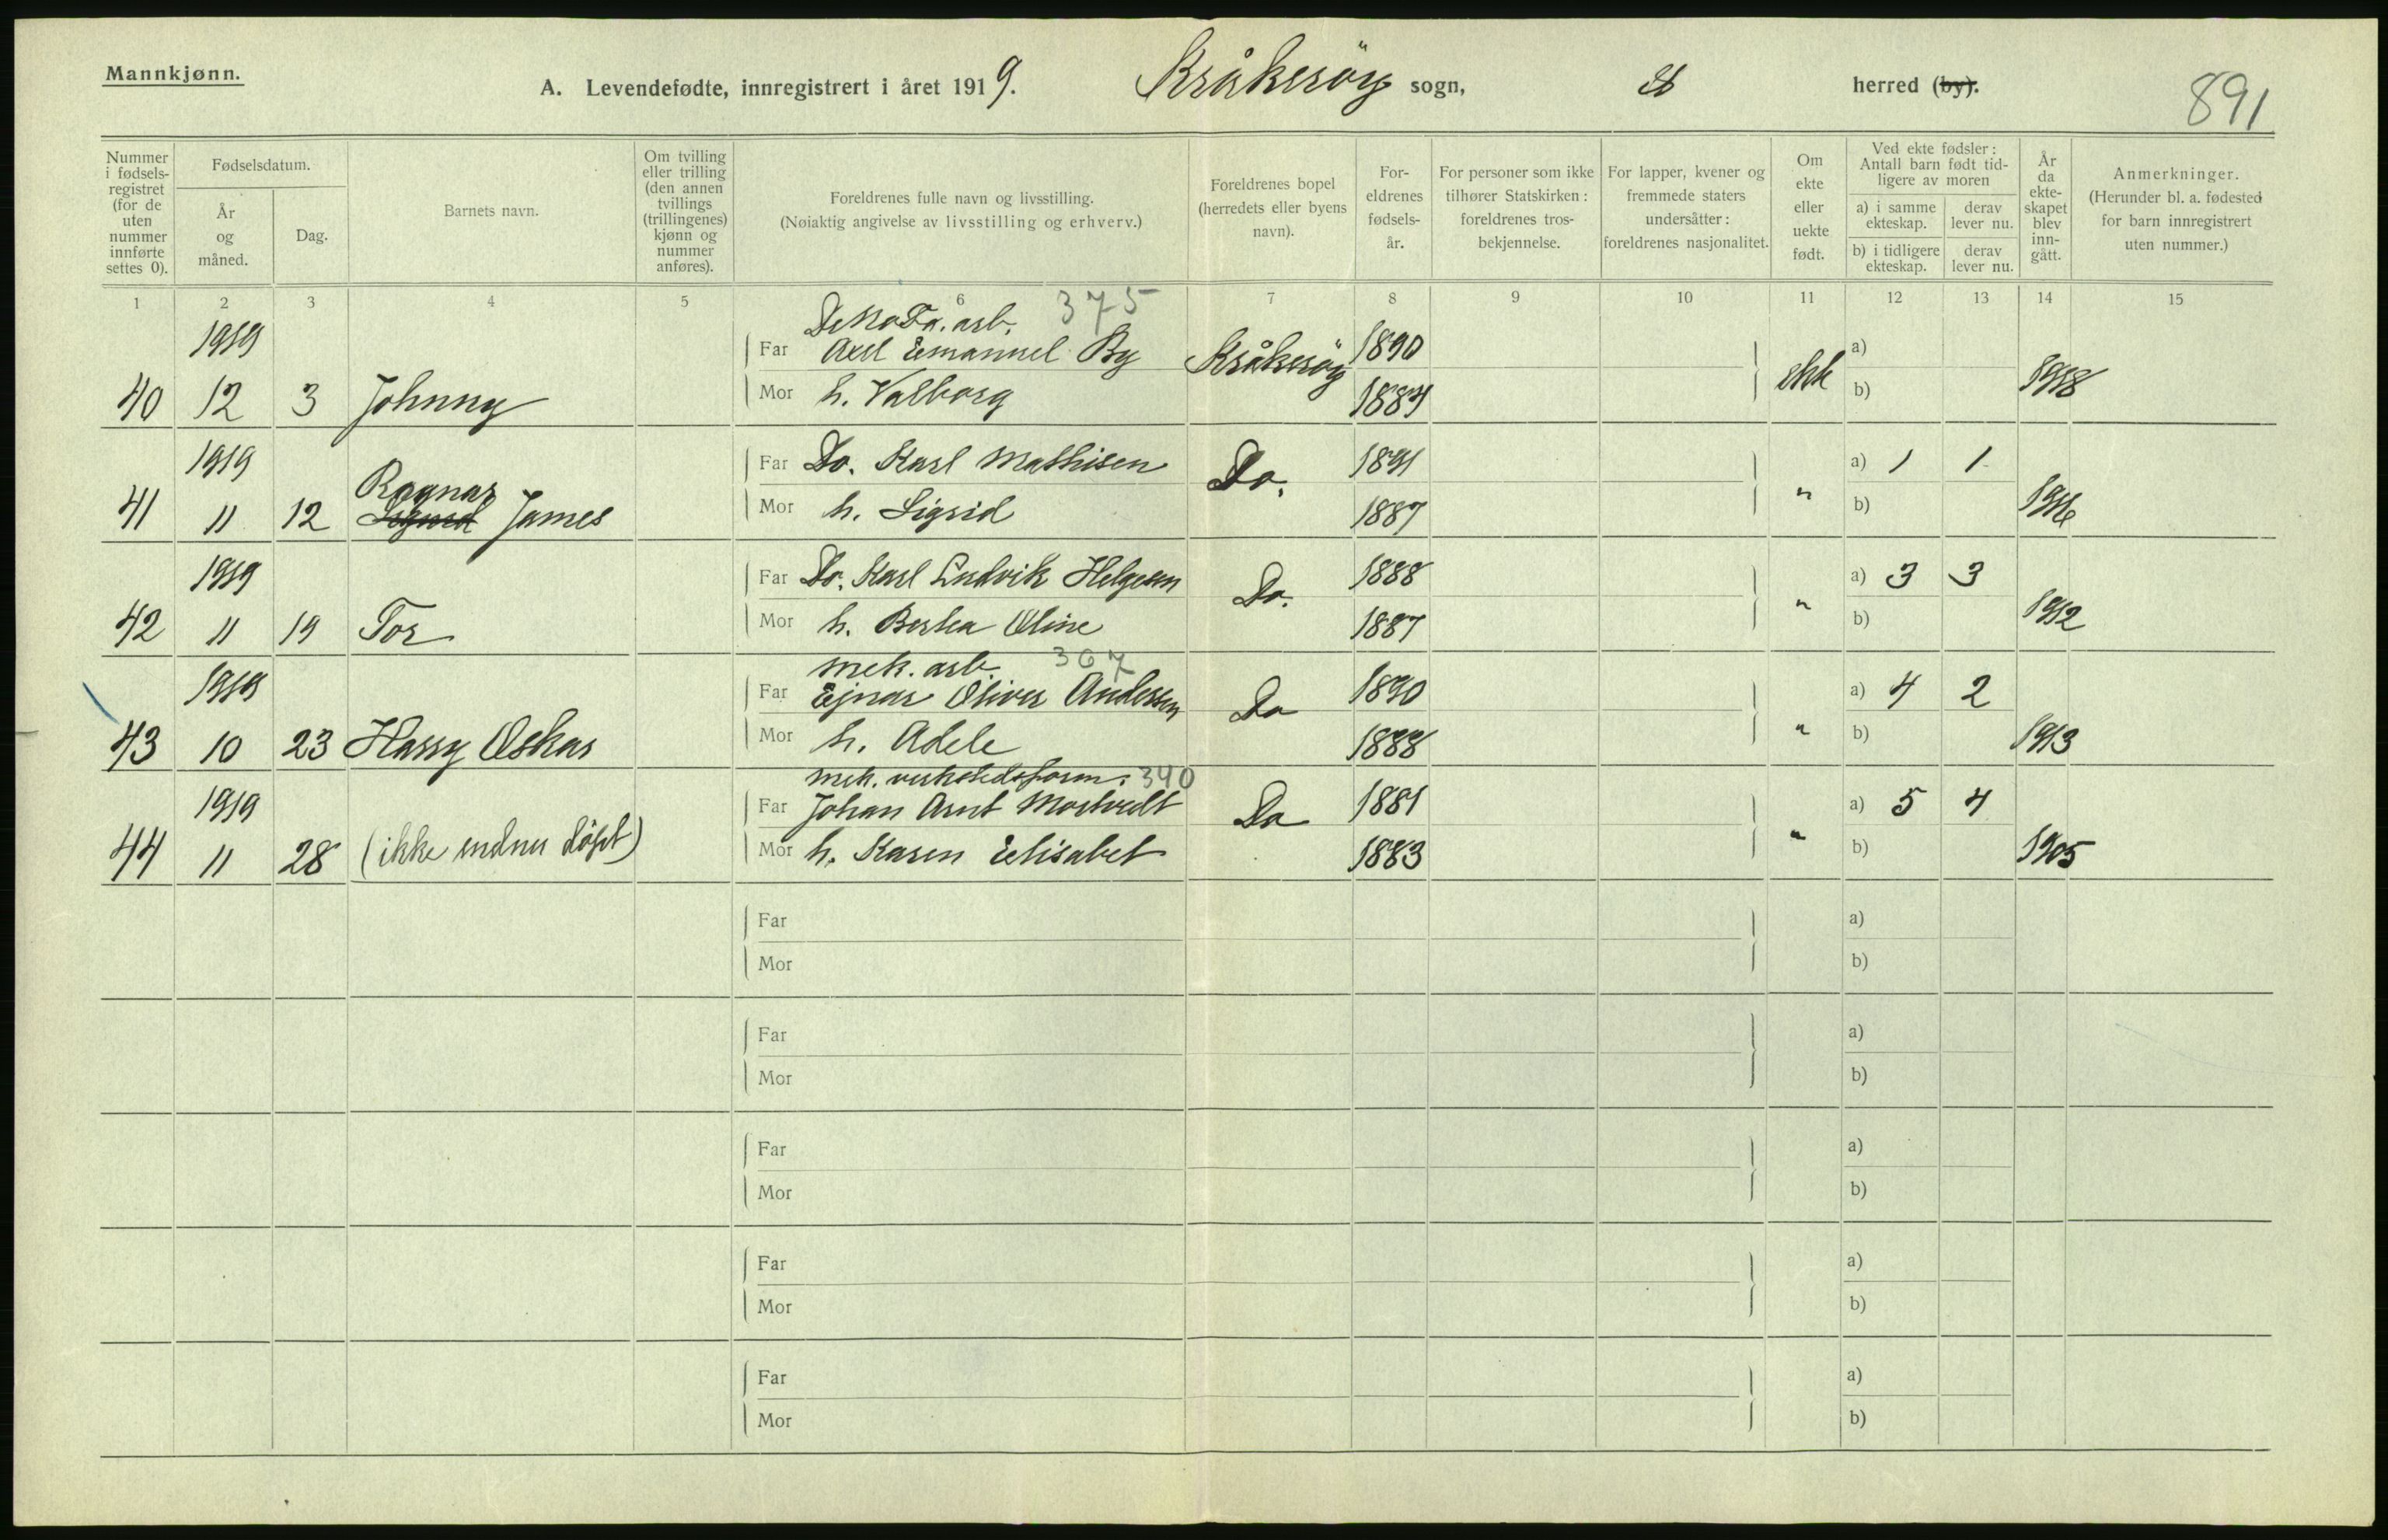 Mannkjønn.
A. Levendefødte, innregistrert i året 1919. Kråkerøy sogn, herred (by).
891
Nummer i fødselsregistret (for de uten nummer innførte settes 0).
Fødselsdatum.
År og måned.
Dag.
Barnets navn.
Om tvilling eller trilling (den annen tvillings (trillingenes) kjønn og nummer anføres).
Foreldrenes fulle navn og livsstilling.
(Nøiaktig angivelse av livsstilling og erhverv.)
Foreldrenes bopel (herredets eller byens navn).
Foreldrenes fødselsår.
For personer som ikke tilhører Statskirken: foreldrenes trosbekjennelse.
For lapper, kvener og fremmede staters undersåtter: foreldrenes nasjonalitet.
Om ekte eller uekte født.
Ved ekte fødsler: Antall barn født tidligere av moren
a) i samme ekteskap.
derav lever nu.
b) i tidligere ekteskap.
derav lever nu.
År da ekteskapet blev inngått.
Anmerkninger.
(Herunder bl. a. fødested for barn innregistrert uten nummer.)
1 2 3 4 5 6 7 8 9 10 11 12 13 14 15
arb. 375
1919 Far Axel Emanuel By Kråkerøy 1890 a)
40 12 3 Johnny Mor h. Valborg 1884 ekte b) 1918
1919 Far Do. Karl Mathisen Do. 1891 a) 1 1
Ragnar
41 11 12 Sigurd James Mor h. Sigrid 1887 " b) 1916
1919 Far Do. Karl Ludvik Helgesen Do. 1888 a) 3 3
42 11 19 Tor Mor h. Bertea Oline 1887 " b) 1912
mek. arb. 307
1919 Far Ejnar Oliver Andersen Do 1890 a) 4 2
43 10 23 Harry Oskar Mor h. Adele 1888 " b) 1913
mek. verkstedsform. 340
1919 Far Johan Arnt Mortvedt Do 1881 a) 5 4
44 11 28 (ikke endnu døpt) Mor h. Karen Elisabet 1883 " b) 1905
Far a)
Mor b)
Far a)
Mor b)
Far a)
Mor b)
Far a)
Mor b)
Far a)
Mor b)